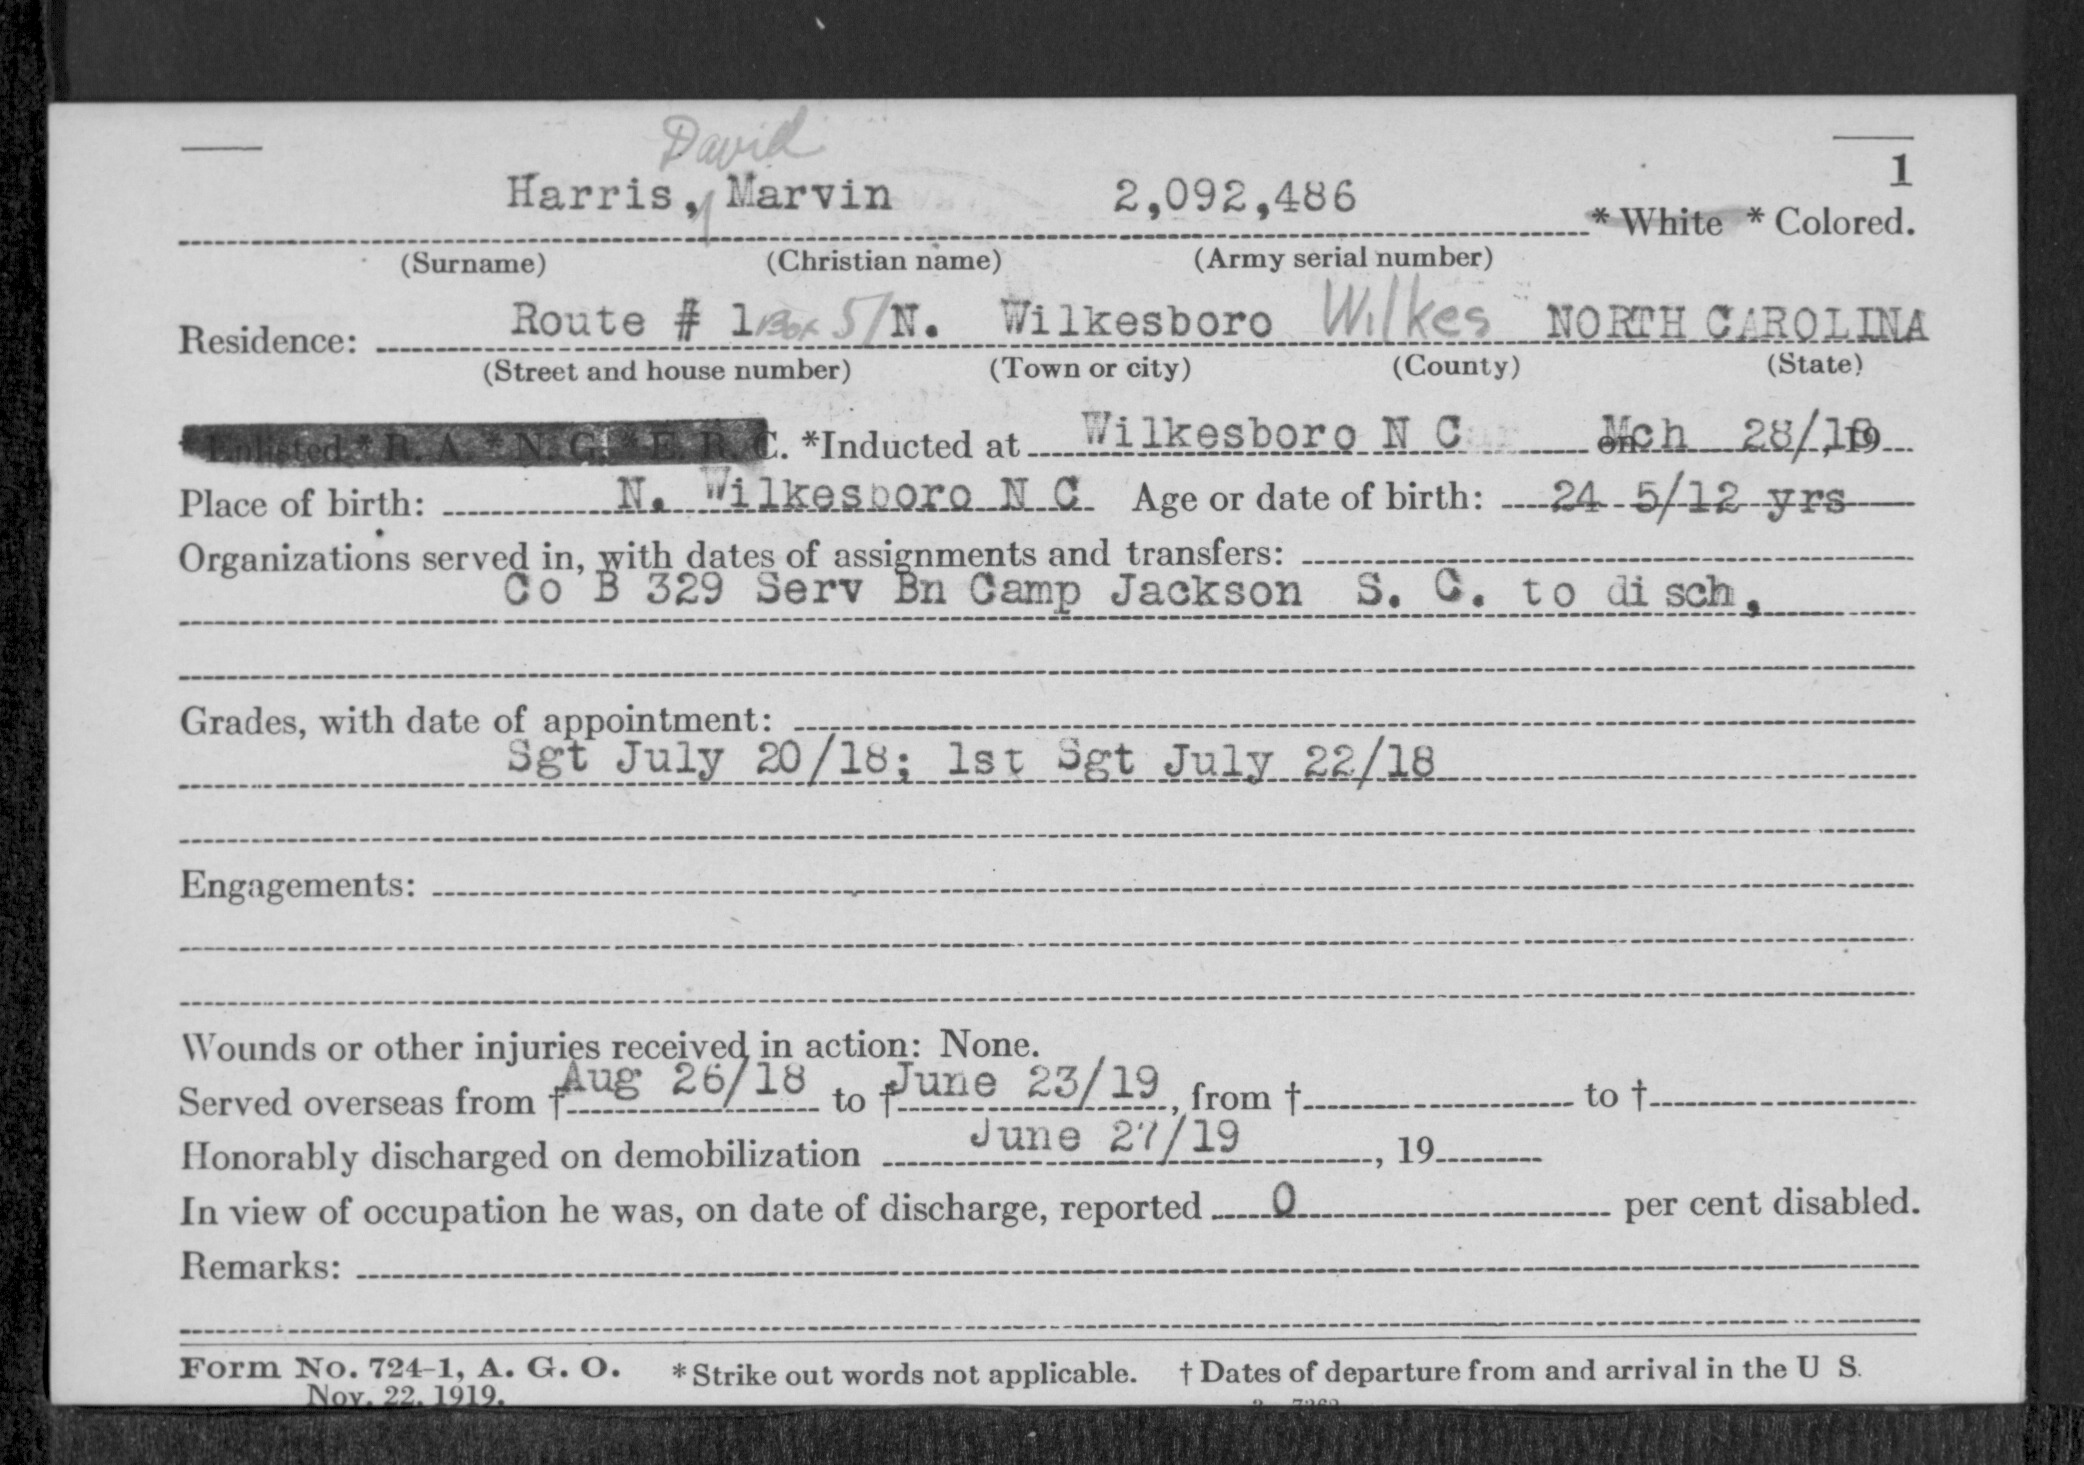 David
1
Harris, Marvin 2,092,486 * White * Colored.
(Surname) (Christian name) (Army serial number)
Residence: Route # 1 Box 51 N. Wilkesboro Wilkes NORTH CAROLINA
(Street and house number) (Town or city) (County) (State)
* Enlisted * R. A. * N. G. * E. R. C. *Inducted at Wilkesboro N C on Mch 28/18, 19
Place of birth: N. Wilkesboro N C Age or date of birth: 24 5/12 yrs
Organizations served in, with dates of assignments and transfers:
Co B 329 Serv Bn Camp Jackson S. C. to disch.
Grades, with date of appointment:
Sgt July 20/18; 1st Sgt July 22/18
Engagements:
Wounds or other injuries received in action: None.
Served overseas from † Aug 26/18 to † June 23/19, from † to †
Honorably discharged on demobilization June 27/19, 19
In view of occupation he was, on date of discharge, reported 0 per cent disabled.
Remarks:
Form No. 724-1, A. G. O. * Strike out words not applicable. † Dates of departure from and arrival in the U S.
Nov. 22, 1919.